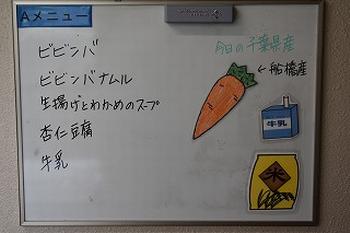 Aメニュー
ビビンバ
ビビンバナムル
生揚げとわかめのスープ
杏仁豆腐
牛乳
今日の千葉県産
←船橋産
牛乳
米